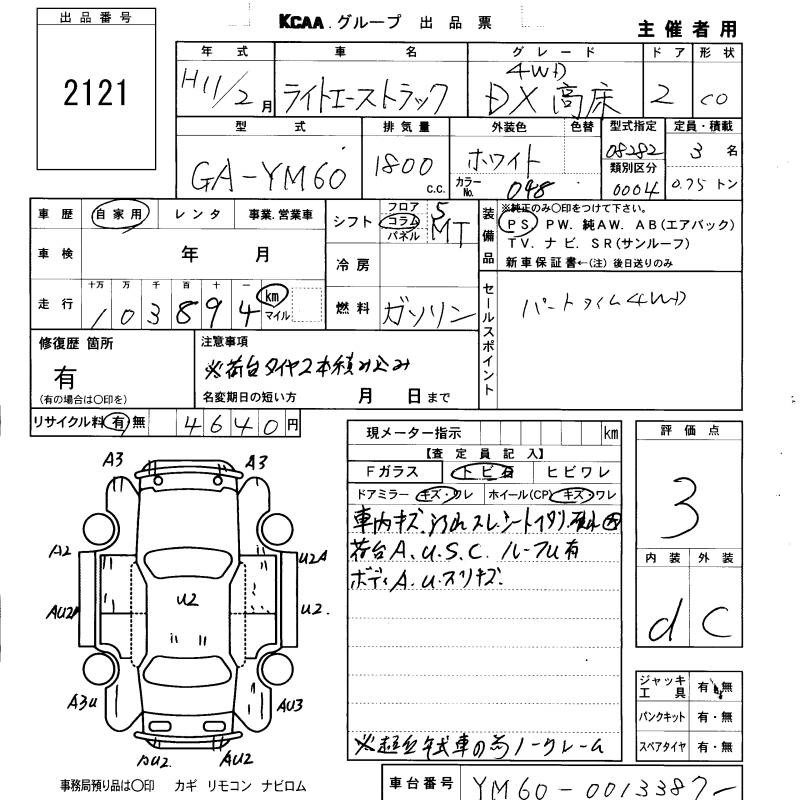 出品番号
2121
KCAA.グループ 出品票
主催者用
年式 車名 グレード ドア 形状
H11/2月 ライトエーストラック 4WD DX 高床 2 CO
型式 排気量 外装色 色替 型式指定 定員・積載
GA-YM60 1800 c.c. ホワイト 08282 3名
カラーNo. 048 類別区分 0004 0.75トン
車歴 自家用 レンタ 事業.営業車
車検 年 月
走行 十万 万 千 百 十 一
103894 km マイル
シフト フロア コラム パネル 5 MT
冷房
燃料 ガソリン
装備品 ※純正のみ〇印をつけて下さい。
PS. PW. 純AW. AB(エアバック)
TV. ナビ. SR(サンルーフ)
新車保証書←(注)後日送りのみ
セールスポイント パートタイム4WD
修復歴 箇所
有
(有の場合は〇印を)
注意事項
※荷台タイヤ2本積み込み
名変期日の短い方 月 日まで
リサイクル料 有 無 4640円
現メーター指示 km
【査定員記入】
Fガラス トビ石 ヒビワレ
ドアミラー キズ・ワレ ホイール(CP) キズ・ワレ
車内キズ.汚れスレシートイタ
荷台A.U.S.C. ルーフU有
ボディA.U.スリキズ.
※超低年式車の為ノークレーム
評価点
3
内装 外装
d C
A3 A3
A2 U2A
U2
AU2 U2.
A3U AU3
AU2 AU2
ジャッキ工具 有・無
パンクキット 有・無
スペアタイヤ 有・無
事務局預り品は〇印 カギ リモコン ナビロム
車台番号 YM60-0013387